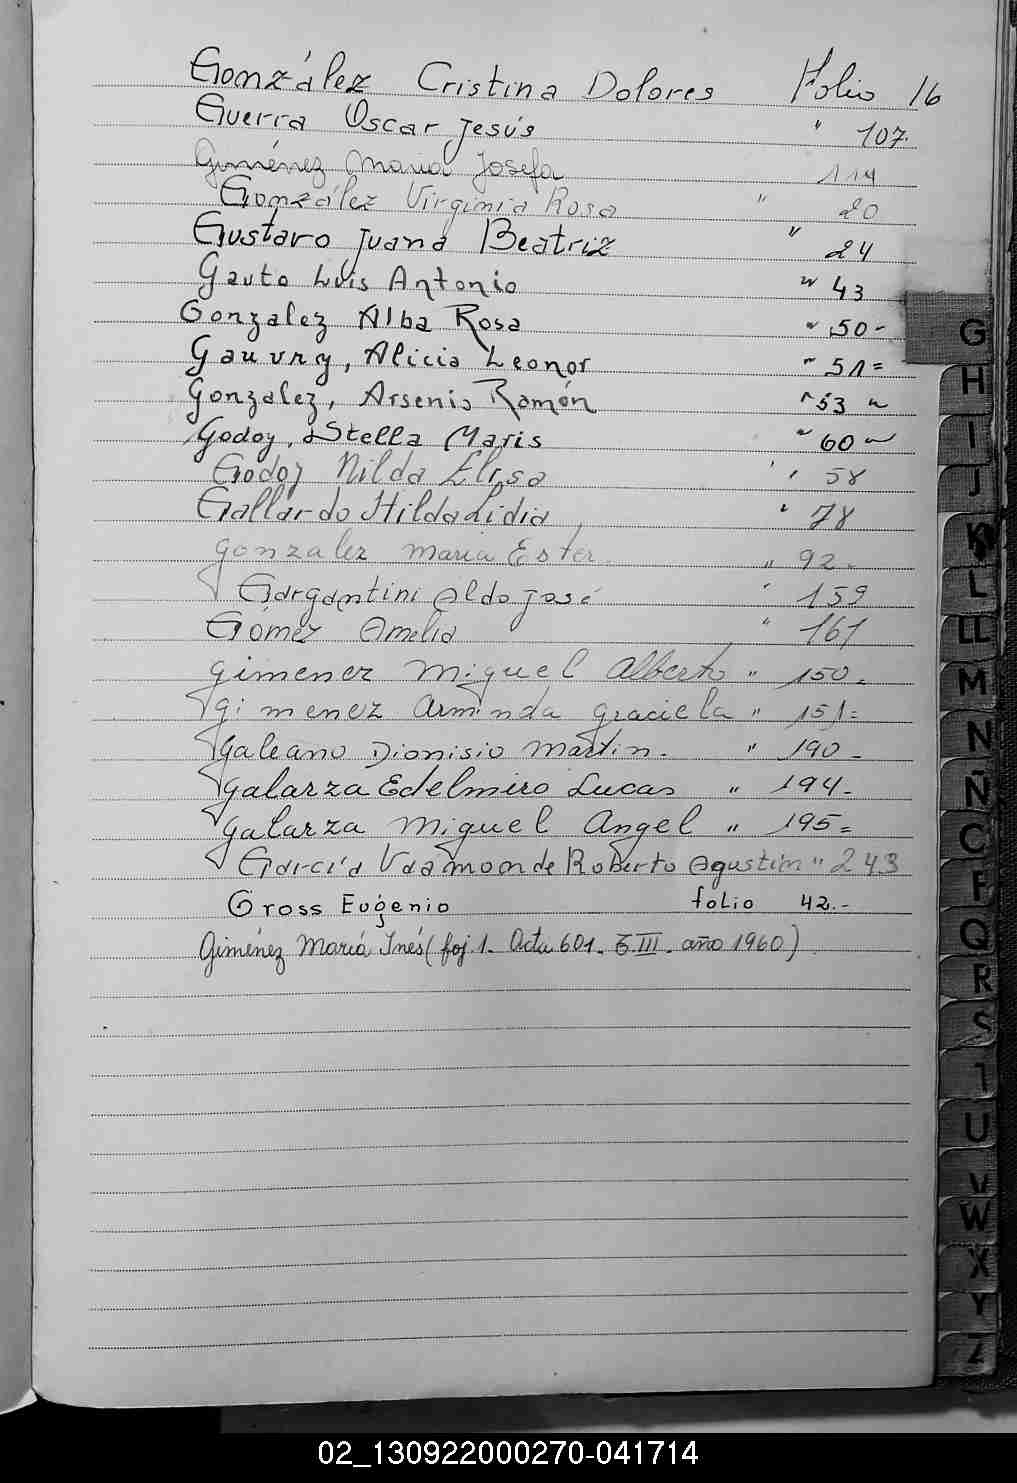 González Cristina Dolores Folio 16
Guerra Oscar Jesús " 107.
Giménez Maria Josefa 114
González Virginia Rosa " 20
Gustavo Juana Beatriz " 24
Gauto Luis Antonio " 43
Gonzalez Alba Rosa " 50-
Gauvry, Alicia Leonor " 51=
Gonzalez, Arsenio Ramón " 53 "
Godoy, Stella Maris " 60
Godoy Nilda Elisa " 58
Gallardo Hilda Lidia " 78
Gonzalez Maria Ester. " 92-
Gargantini Aldo José " 159
Gomez Amelia " 161
Gimenez Miguel Alberto " 150=
Gimenez Arminda Graciela " 151=
Galeano Dionisio Martin. " 190-
Galarza Edelmiro Lucas " 194-
Galarza Miguel Angel " 195=
García Vaamonde Roberto Agustin " 243
Gross Eugenio folio 42.-
Giménez María Inés (foj. 1. Acta 601. III. año 1960)
G
H
I
J
K
L
LL
M
N
Ñ
O
P
Q
R
S
T
U
V
W
X
Y
Z
02_130922000270-041714